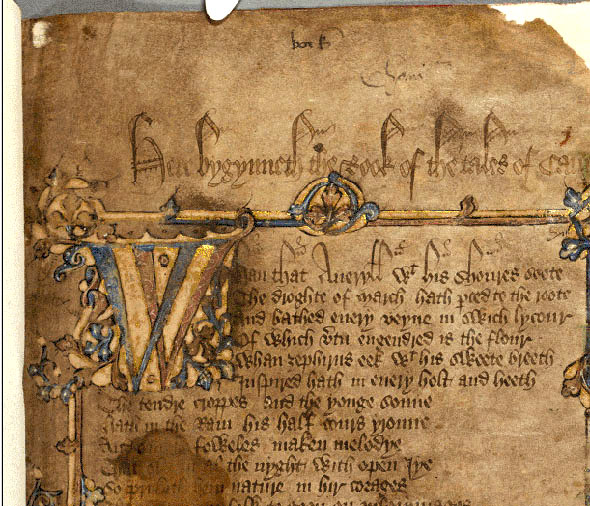 Here bygynneth the Book of the tales of Caun
Whan that Aueryll wt his shoures soote
The droghte of March hath pced to the roote
And bathed euery veyne in swich lycour
Of which vtu engendred is the flour
Whan zephirus eek wt his sweete breeth
Inspired hath in euery holt and heeth
The tendre croppes and the yonge sonne
Hath in the Ram his half cours yronne
And foweles maken melodye
That al the nyght with open Iye
So priketh hem nature in hir corages
to goon on pilgrimages